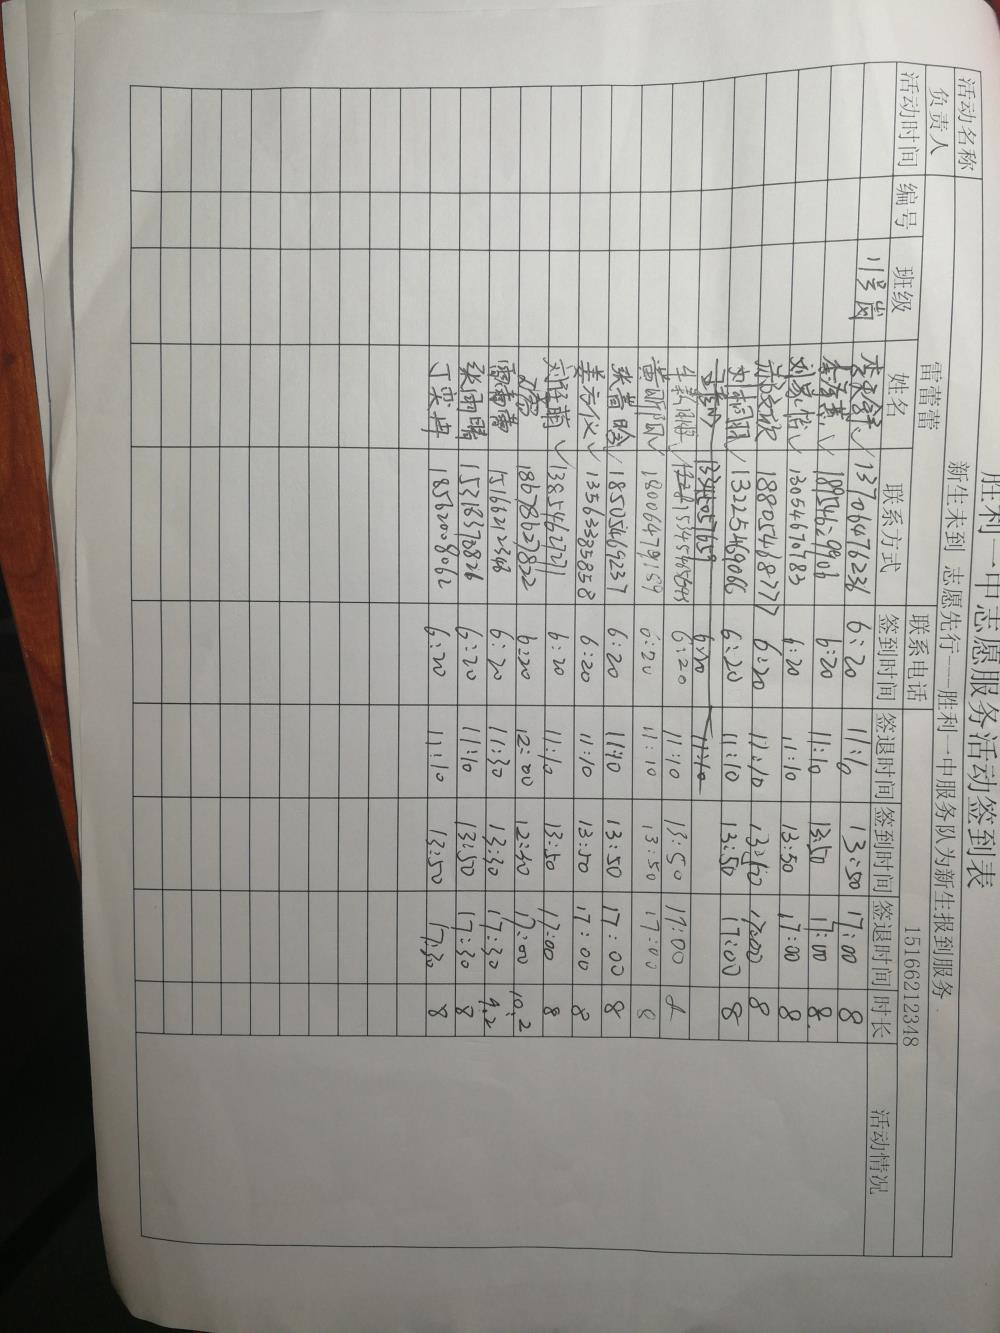 胜利一中志愿服务活动签到表
活动名称 新生未到 志愿先行——胜利一中服务队为新生报到服务
负责人 雷蕾蕾 联系电话 15166212348
活动时间 编号 班级 姓名 联系方式 签到时间 签退时间 签到时间 签退时间 时长 活动情况
11号岗 13706476236 6:20 11:10 13:50 17:00 8
6:20 11:10 13:50 17:00 8
刘家怡 13054670783 6:20 11:10 13:50 17:00 8
18805468777 6:20 11:10 13:50 17:00 8
13225469066 6:20 11:10 13:50 17:00 8
6:20 11:10
6:20 11:10 13:50 17:00 8
黄昕 18006479159 6:20 11:10 13:50 17:00 8
张蔷晗 18505469237 6:20 11:10 13:50 17:00 8
姜元仪 13563385858 6:20 11:10 13:50 17:00 8
萌 13854627271 6:20 11:10 13:50 17:00 8
18678627822 6:20 12:00 12:30 17:00 10.2
雷蕾蕾 15166212348 6:20 11:30 13:30 17:30 9.2
张雨晴 15318378826 6:20 11:10 13:50 17:30 8
丁奕冉 18562008062 6:20 11:10 13:50 17:30 8